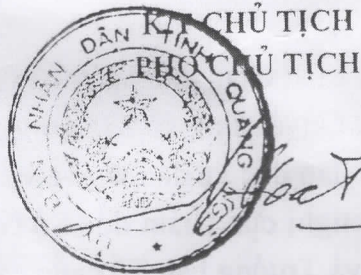 K/T CHỦ TỊCH
PHÓ CHỦ TỊCH
NHÂN DÂN TỈNH QUẢNG